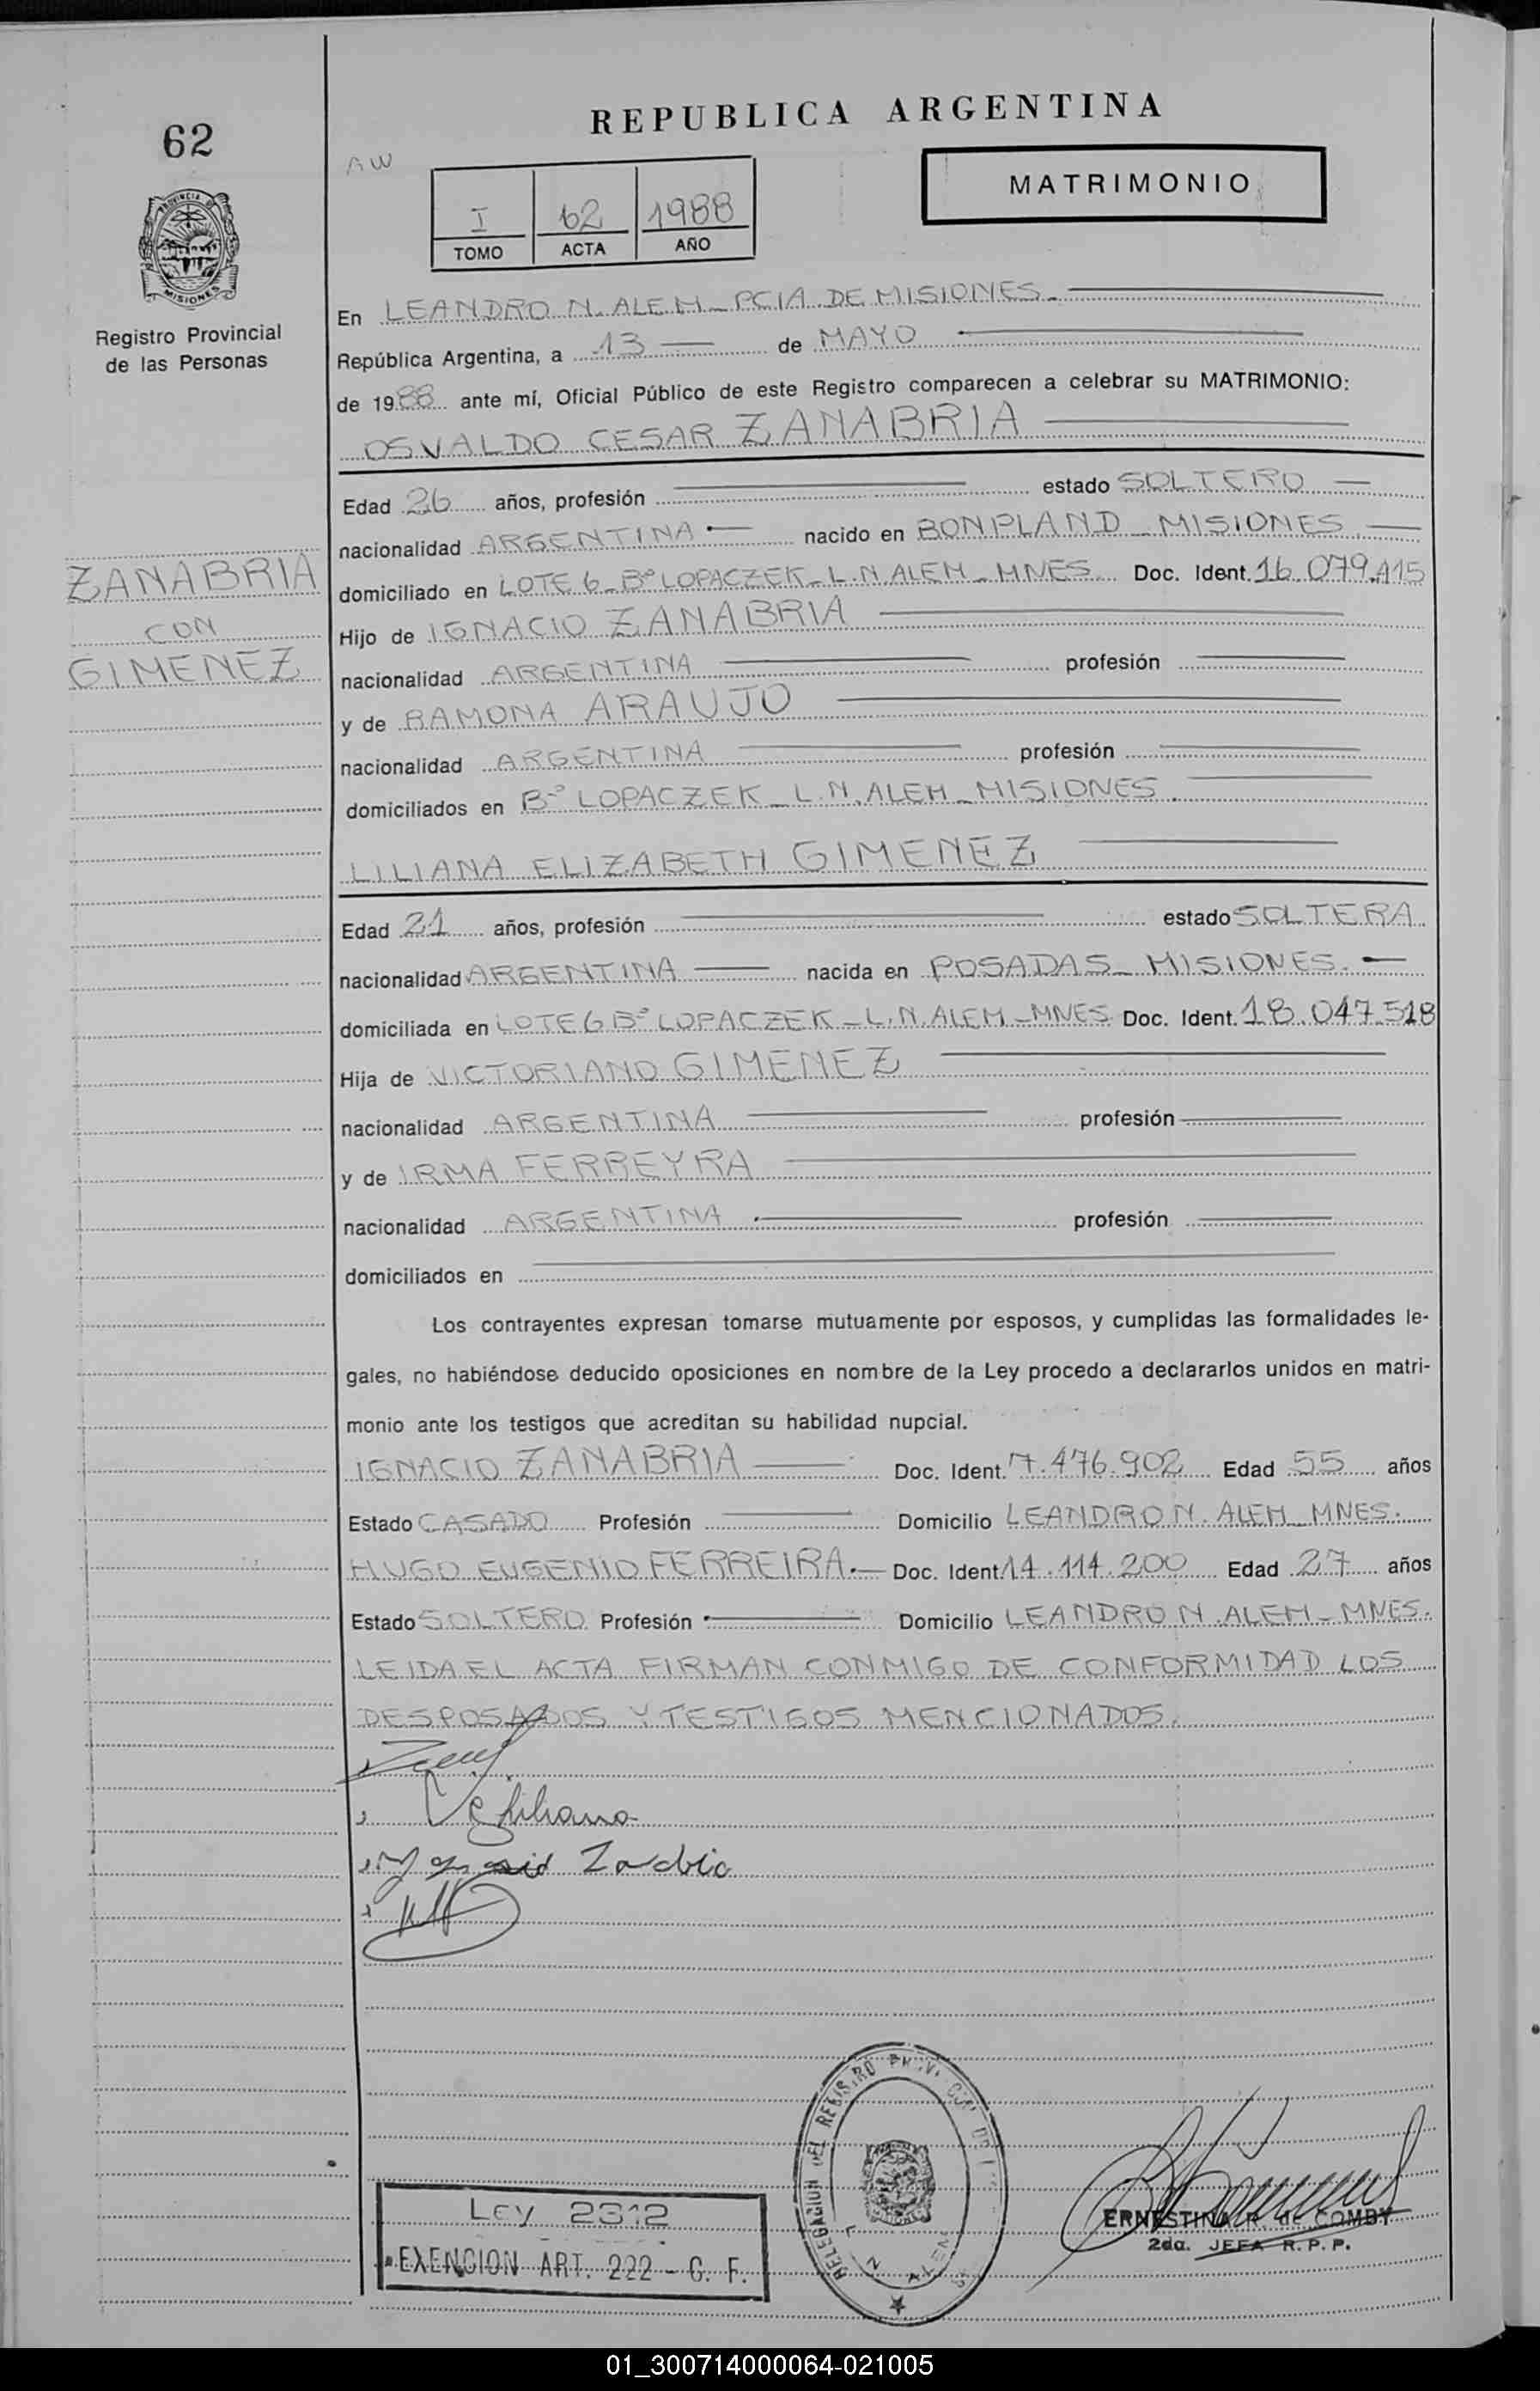 62
REPUBLICA ARGENTINA
AW
MATRIMONIO
I 62 1988
TOMO ACTA AÑO
PROVINCIA DE
MISIONES
Registro Provincial
de las Personas
En LEANDRO N. ALEM - PCIA DE MISIONES.
República Argentina, a 13 de MAYO
de 1988 ante mí, Oficial Público de este Registro comparecen a celebrar su MATRIMONIO:
OSVALDO CESAR ZANABRIA
Edad 26 años, profesión estado SOLTERO
nacionalidad ARGENTINA nacido en BONPLAND - MISIONES
ZANABRIA
CON
GIMENEZ
domiciliado en LOTE 6 - Bº LOPACZEK - L.N. ALEM - MNES Doc. Ident. 16.079.415
Hijo de IGNACIO ZANABRIA
nacionalidad ARGENTINA profesión
y de RAMONA ARAUJO
nacionalidad ARGENTINA profesión
domiciliados en Bº LOPACZEK - L.N. ALEM - MISIONES.
LILIANA ELIZABETH GIMENEZ
Edad 21 años, profesión estado SOLTERA
nacionalidad ARGENTINA nacida en POSADAS - MISIONES.
domiciliada en LOTE 6 Bº LOPACZEK - L.N. ALEM - MNES Doc. Ident. 18.047.518
Hija de VICTORIANO GIMENEZ
nacionalidad ARGENTINA profesión
y de IRMA FERREYRA
nacionalidad ARGENTINA profesión
domiciliados en
Los contrayentes expresan tomarse mutuamente por esposos, y cumplidas las formalidades le-
gales, no habiéndose deducido oposiciones en nombre de la Ley procedo a declararlos unidos en matri-
monio ante los testigos que acreditan su habilidad nupcial.
IGNACIO ZANABRIA Doc. Ident. 7.476.902 Edad 55 años
Estado CASADO Profesión Domicilio LEANDRO N. ALEM - MNES.
HUGO EUGENIO FERREIRA. Doc. Ident. 14.114.200 Edad 27 años
Estado SOLTERO Profesión Domicilio LEANDRO N. ALEM - MNES.
LEIDA EL ACTA FIRMAN CONMIGO DE CONFORMIDAD LOS
DESPOSADOS Y TESTIGOS MENCIONADOS.
DELEGACION DEL REGISTRO
L. N. ALEM
ERNESTINA R. de COMBY
2da. JEFA R. P. P.
Ley 2312
EXENCION ART. 222 - C. F.
01_300714000064-021005